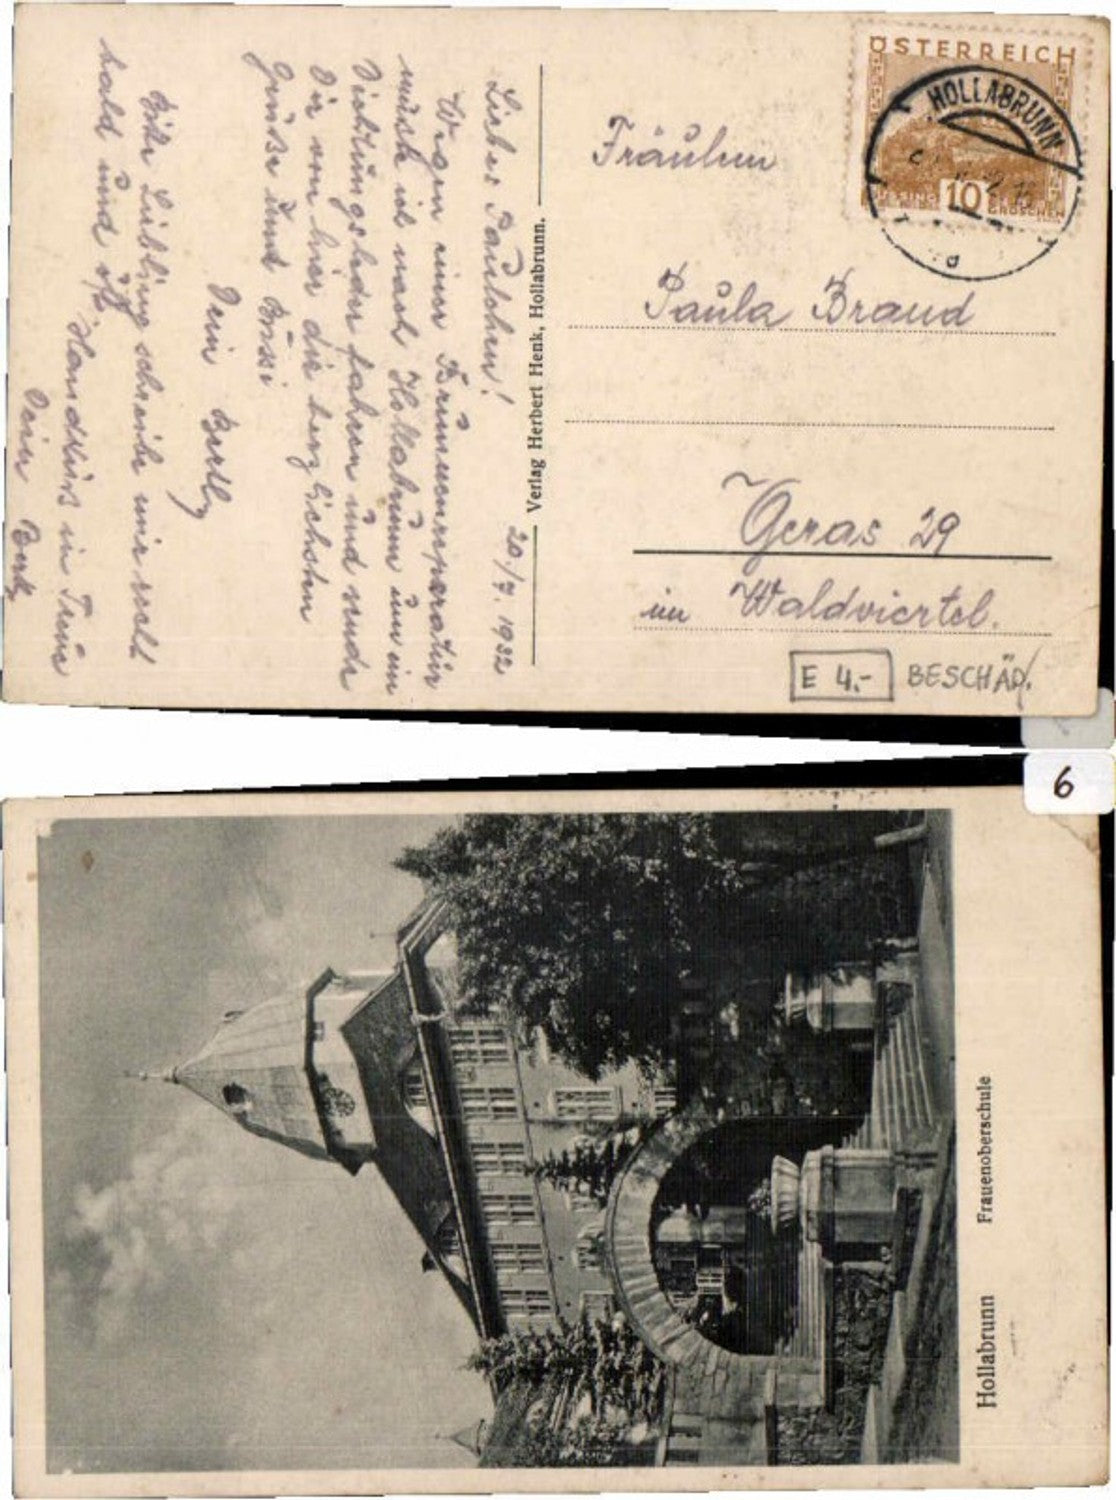 20./7. 1932
Liebes Paulchen!
Wegen einer Brunnenreparatur
musste ich nach Hollabrunn um ein
Dichtungsleder fahren und sende
Dir von hier die herzlichsten
Grüsse und Bussi
Dein Bertl
Bitte Liebling schreibe mir recht
bald und oft.
Handkuß in Treue
Dein
Verlag Herbert Henk, Hollabrunn.
ÖSTERREICH
HOLLABRUNN
10
GROSCHEN
Fräulein
Paula Brand
Geras 29
im Waldviertel.
E 4.- BESCHÄD.
6
Hollabrunn Frauenoberschule